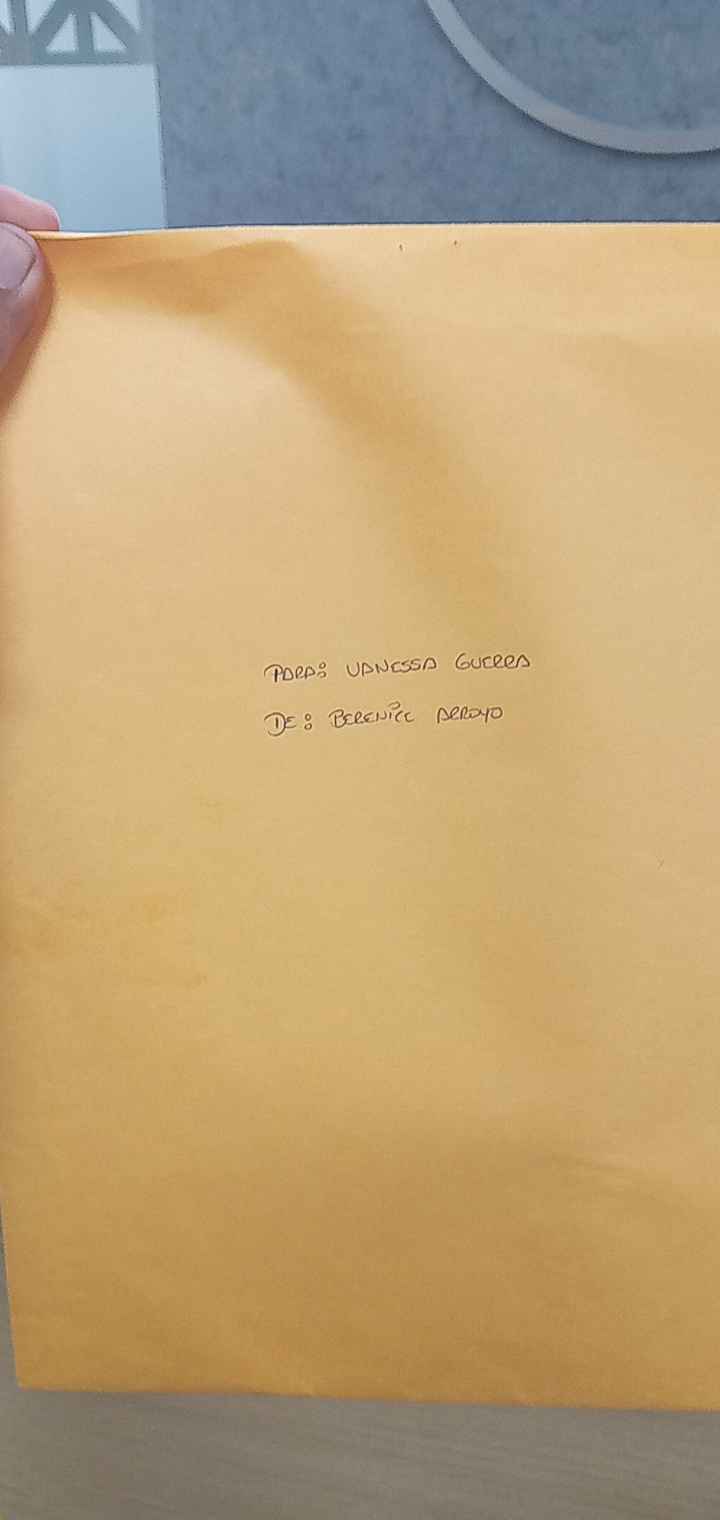 PARA: VANESSA GUERRA
DE: BERENICE ARROYO